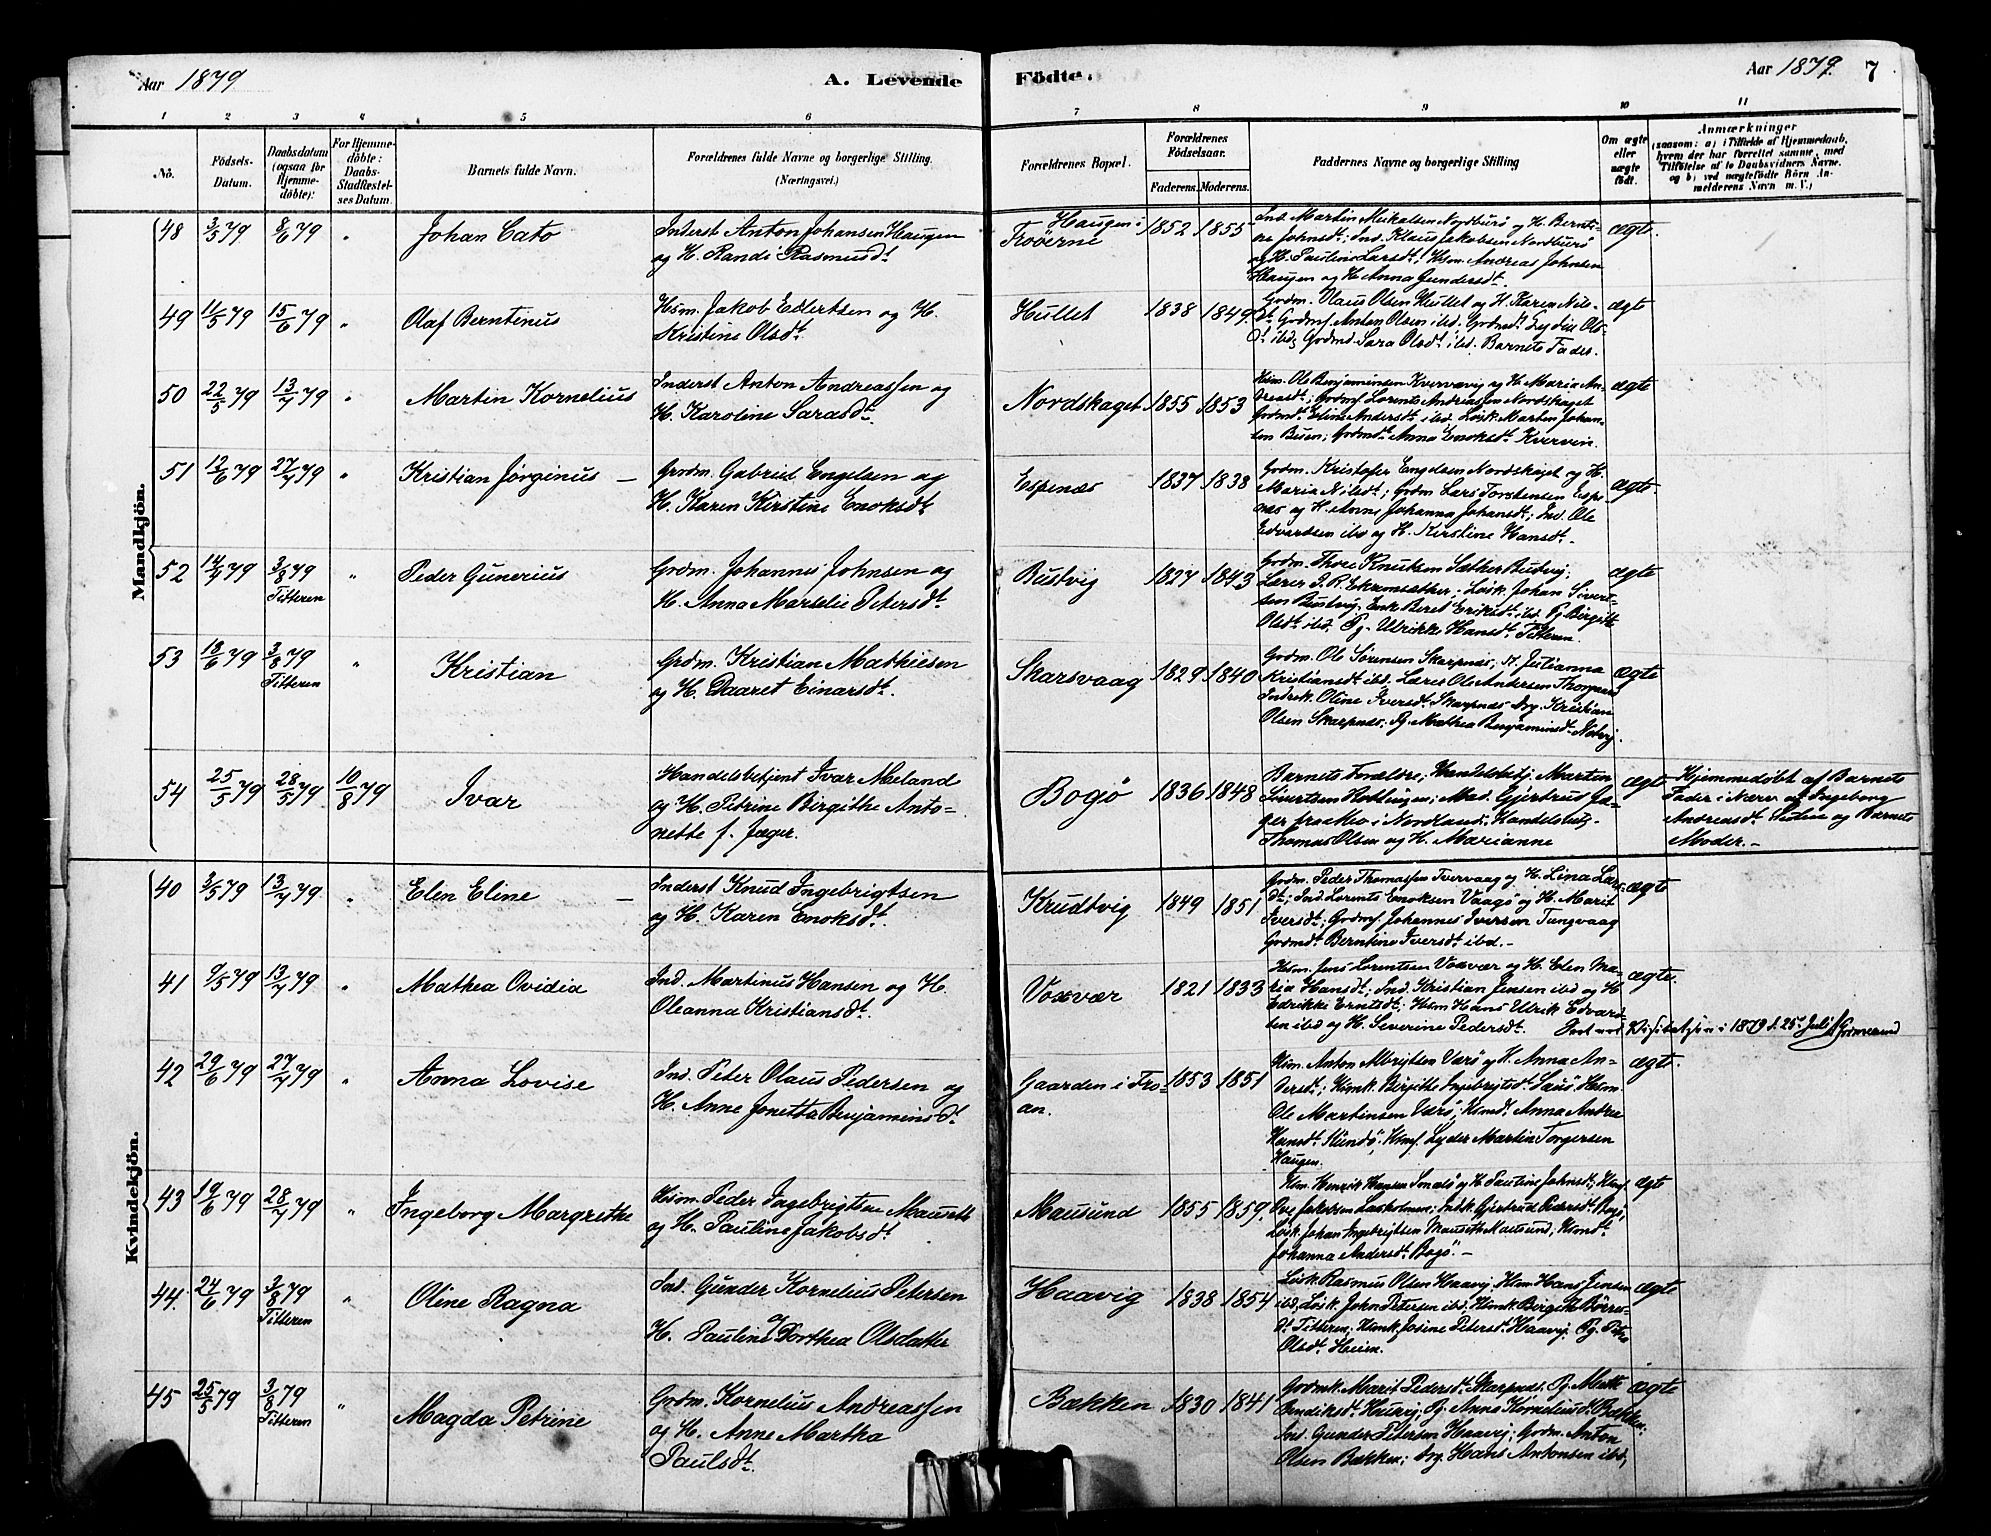 Aar 1879
A. Levende
Födte.
Aar 1879. 7
1 2 3 4 5 6 7 8 9 10 11
No.
Födsels-
Datum.
Daabsdatum
(ogsaa for
Hjemme-
döbte):
For Hjemme-
döbte:
Daabs-
Stadfæstel-
ses Datum.
Barnets fulde Navn.
Forældrenes fulde Navne og borgerlige Stilling.
(Næringsvei.)
Forældrenes Bopæl.
Forældrenes
Födselsaar.
Faderens. Moderens.
Faddernes Navne og borgerlige Stilling
Om ægte
eller
uægte
födt.
Anmærkninger
(saasom: a) i Tilfælde af Hjemmedaab,
hvem der har forrettet samme, med
Tilföielse af to Daabsvidners Navne.
og b) ved uægtefödte Börn An-
melderens Navn m. V.)
Mandkjön.
48 3/5 79 8/6 79 " Johan Cato
Inderst Anton Johansen Haugen
og H. Randi Rasmusdt
Haugen i
Froöerne 1852 1855
Ind. Martin Mikalsen Nordburö og H. Bernti-
ne Johnsdt; Ind. Klaus Jakobsen Nordburö
og H. Pauline Larsdt; Hsm. Andreas Johnsen
Haugen og H. Anna Gundersdt.
ægte.
49 11/5 79 15/6 79 " Olaf Berntinus
Hsm. Jakob Edvertsen og H.
Kristine Olsdt.
Hullet 1838 1849
Grdm. Olaus Olsen Hullet og H. Karen Nils-
dt. Grdmf. Anton Olsen ibd. Grdmdt. Lydia Ols-
dt ibd; Grdmd. Sara Olsdt ibd. Barnets Fader.
ægte
50 22/5 79 13/7 79 " Martin Kornelius
Inderst Anton Andreassen og
H. Karoline Sarasdt.
Nordskaget 1855 1853
Hsm. Ole Benjaminsen Kvervavig og H. Maria An-
dreasdt; Grdmf. Lorents Andreassen Nordskaget
Grdmdt. Eline Andersdt ibd. Lösk. Marten Johan-
sen Buen; Grdmdt. Anna Enoksdt Kverven.
ægte
51 12/6 79 27/7 79 " Kristian Jørginus
Grdm. Gabriel Engelsen og
H. Karen Kirstine Enoksdt
Espenæs 1837 1838
Grdm. Kristofer Engelsen Nordskaget og H.
Maria Nilsdt; Grdm Lars Torstensen Espe-
næs og H. Anne Johanna Johansdt; Ind. Ole
Edvardsen ibd og H. Kirstine Hansdt.
ægte.
52 14/7 79 3/8 79 " Peder Gunerius
Titteren
Grdm. Johannes Johnsen og
H. Anna Marselie Petersdt.
Bustvig 1827 1843
Grdm. Thore Knutsen Sæther Bustvig;
Lærer J. R. Ekremsæther; Lösk. Johan Sivert-
sen Bustvig; Enk. Beret Eriksdt ibd. Pg. Birgitte
Olsdt ibd. Pg. Ulrikke Hansdt. Titteren.
ægte
53 18/6 79 3/8 79 " Kristian
Titteren
Grdm. Kristian Mathiesen
og H. Daaret Einarsdt.
Skarsvaag 1829 1840
Grdm. Ole Sörensen Skarpnæs, H. Julianna
Kristiansdt ibd. Lærer Ole Andersen
Indrek. Oline Iversdt. Skarpnæs drg. Kristian
Olsen Skarpnæs; Pg. Mathea Benjaminsdt
ægte
54 25/5 79 28/5 79 10/8 79 Ivar
Handelsbetjent Ivar Meland
og H. Petrine Birgithe Anto-
nette f. Jæger.
Bogö 1836 1848
Barnets Forældre; Handelsbetj. Morten
Sivertsen Rottingen; Mad. Gjertrud Jæ-
ger fra Mo i Nordland; Handelsbetj.
Thomas Olsen og H. Marianne
ægte
Hjemmedøbt af Barnets
Fader i Nærv. af Ingeborg
Andreasdt. Sistine og Barnets
Moder.
Kvindekjön.
40 3/5 79 13/7 79 " Elen Eline
Inderst Knud Ingebrigtsen
og H. Karen Enoksdt.
Krudtvig 1849 1851
Grdm. Peder Thomassen Tvervaag og H. Lina Lars-
dt; Ind. Lorents Enoksen Vaagö og H. Marit
Iversdt; Grdmf. Johannes Iversen Tungvaag
Grdmdt Berntine Iversdt ibd.
ægte
41 9/5 79 13/7 79 " Mathea Ovidia
Ind. Martinus Hansen og H.
Oleanna Kristiansdt.
Voxvær 1821 1833
Hsm. Jens Lorentsen Voxvær og H. Elen Ma-
ria Hansdt; Ind. Kristian Jensen ibd og H
Edrikke Ernstsdt; Hsm Hans Ulrik Edvard-
sen ibd og H. Severine Pedersdt.
ægte.
ved Visitatsen i 1879 d. 25. Juli
42 29/6 79 27/7 79 " Anna Lovise
Ind. Peter Olaus Pedersen og
H. Anne Jonetta Benjaminsdt
Gaarden i Fro-
an. 1853 1851
Hsm. Anton Albrigtsen Værö og H. Anna An-
dersdt; Hsmk. Birgitte Ingebrigtsdt Sauö; Hsm.
Ole Martinsen Værö; Hsmdt. Anna Andrea
Hansdt Sundö; Hsmf. Lyder Martin Torgersen
Haugen.
ægte.
43 19/6 79 28/7 79 " Ingeborg Margrethe
Hsm. Peder Ingebrigtsen Mauseth
og H. Pauline Jakobsdt
Mausund 1855 1859
Hsm. Henrik Hansen og H. Pauline Johnsdt; Hsmf
Ove Jakobsen; Indk. Gjertrud Pedersdt Bogö;
Lösk. Johan Ingebrigtsen Mauseth Mausund, Hsmdt
Johanna Andersdt. Bogö.
ægte
44. 24/6 79 3/8 79 " Oline Ragna
Titteren
Ind. Gunder Kornelius Petersen
og
H. Pauline Dorthea Olsdatter
Haavig 1838 1854
Lösk. Rasmus Olsen Haavig. Hsm. Hans Jensen
ibd, Lösk. John Petersen ibd. Hsmk. Birgitte Börre-
dt. Titteren. Hsmk. Josine Petersdt. Haavig. Pg.
Olsdt. Heim.
ægte
45 25/5 79 3/8 79 " Magda Petrine
Titteren
Grdm. Kornelius Andreassen
og H. Anne Martha
Paulsdt.
Bækken 1830 1841
Grdmk. Marit Pedersdt. Skarpnæs. Pg. Marit
Bendiksdt; Pg. Anna Korneliusdt Bækken;
Ind. Gunder Petersen Haavig; Grdm. Anton
Olsen Bækken; drg. Hans Antonsen ibd,
ægte